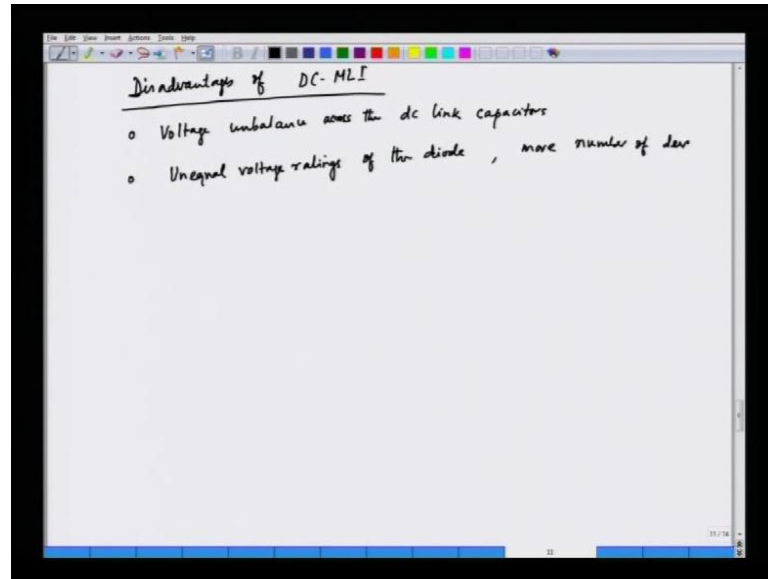 File Edit View Insert Actions Tools Help
Disadvantages of DC-MLI
o Voltage unbalance across the dc link capacitors
o Unequal voltage ratings of the diode, more number of dev
11/16
11